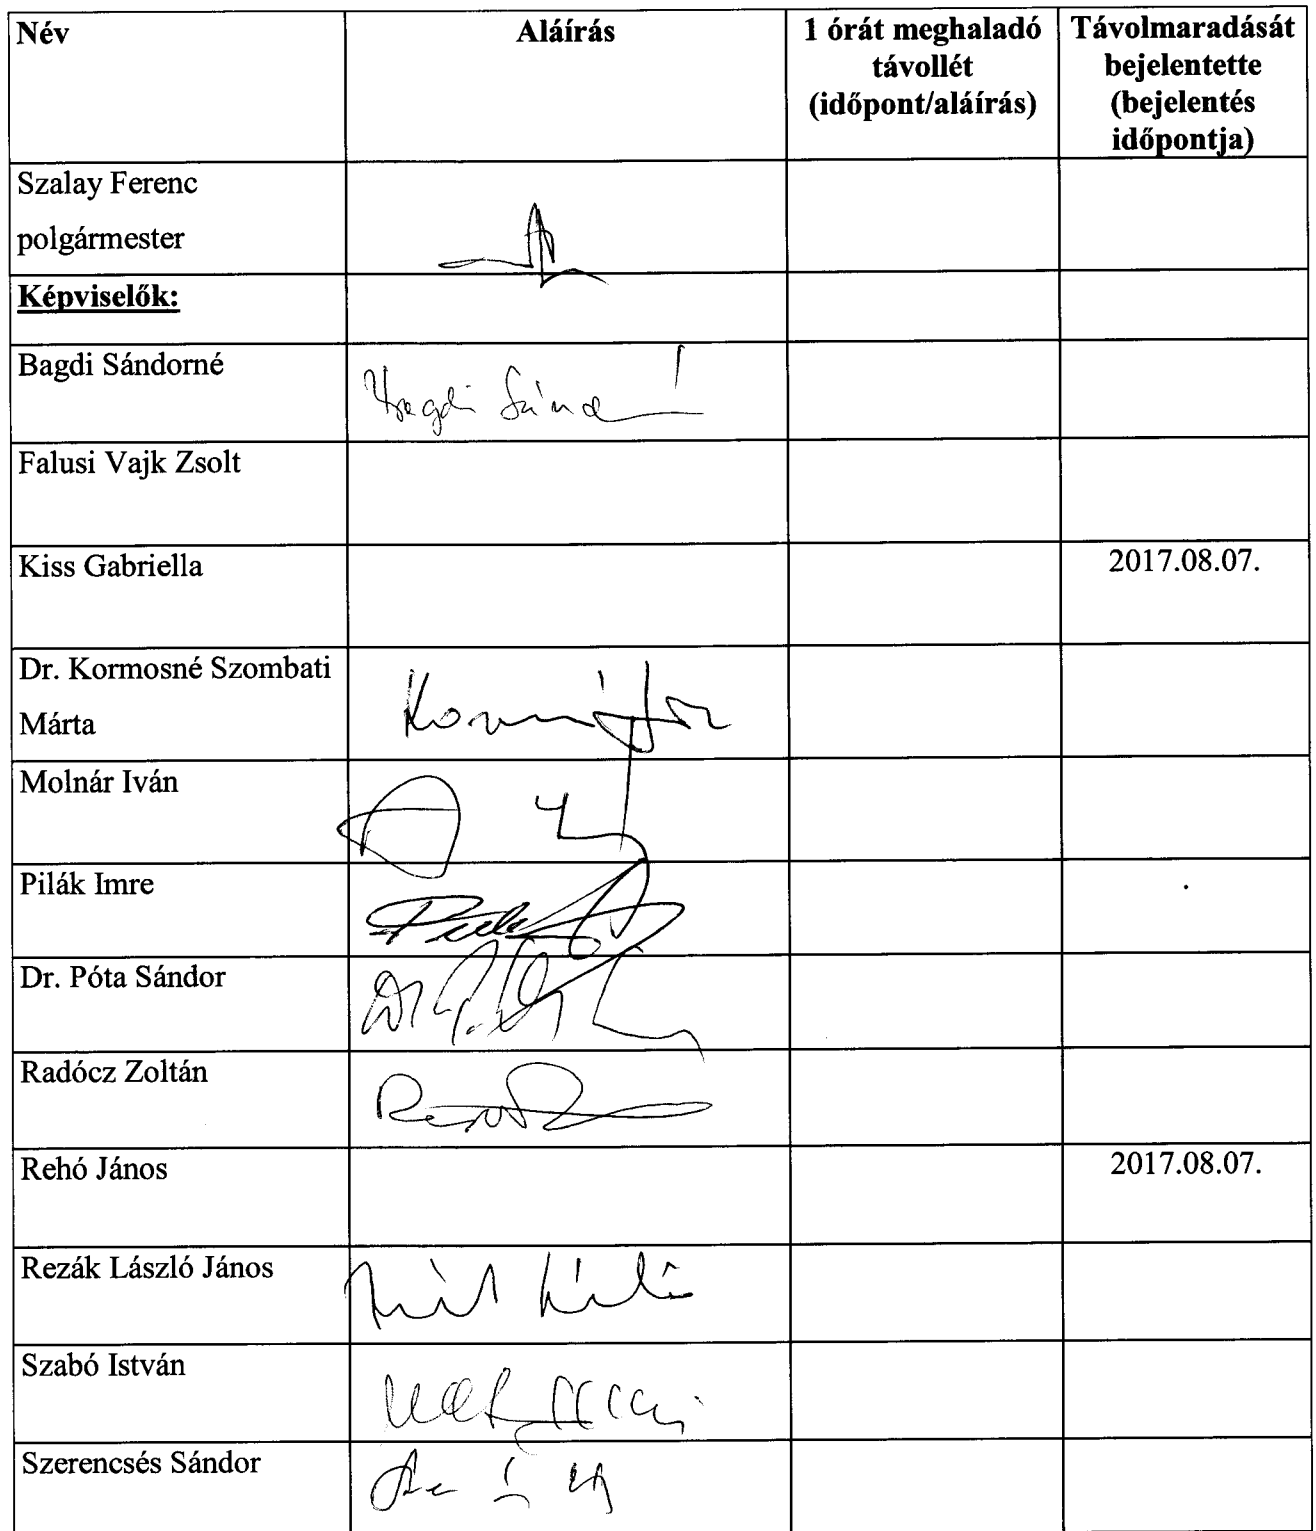 Név
Aláírás
1 órát meghaladó
távollét
(időpont/aláírás)
Távolmaradását
bejelentette
(bejelentés
időpontja)
Szalay Ferenc
polgármester
Képviselők:
Bagdi Sándorné
Falusi Vajk Zsolt
Kiss Gabriella
2017.08.07.
Dr. Kormosné Szombati
Márta
Molnár Iván
Pilák Imre
Dr. Póta Sándor
Radócz Zoltán
Rehó János
2017.08.07.
Rezák László János
Szabó István
Szerencsés Sándor